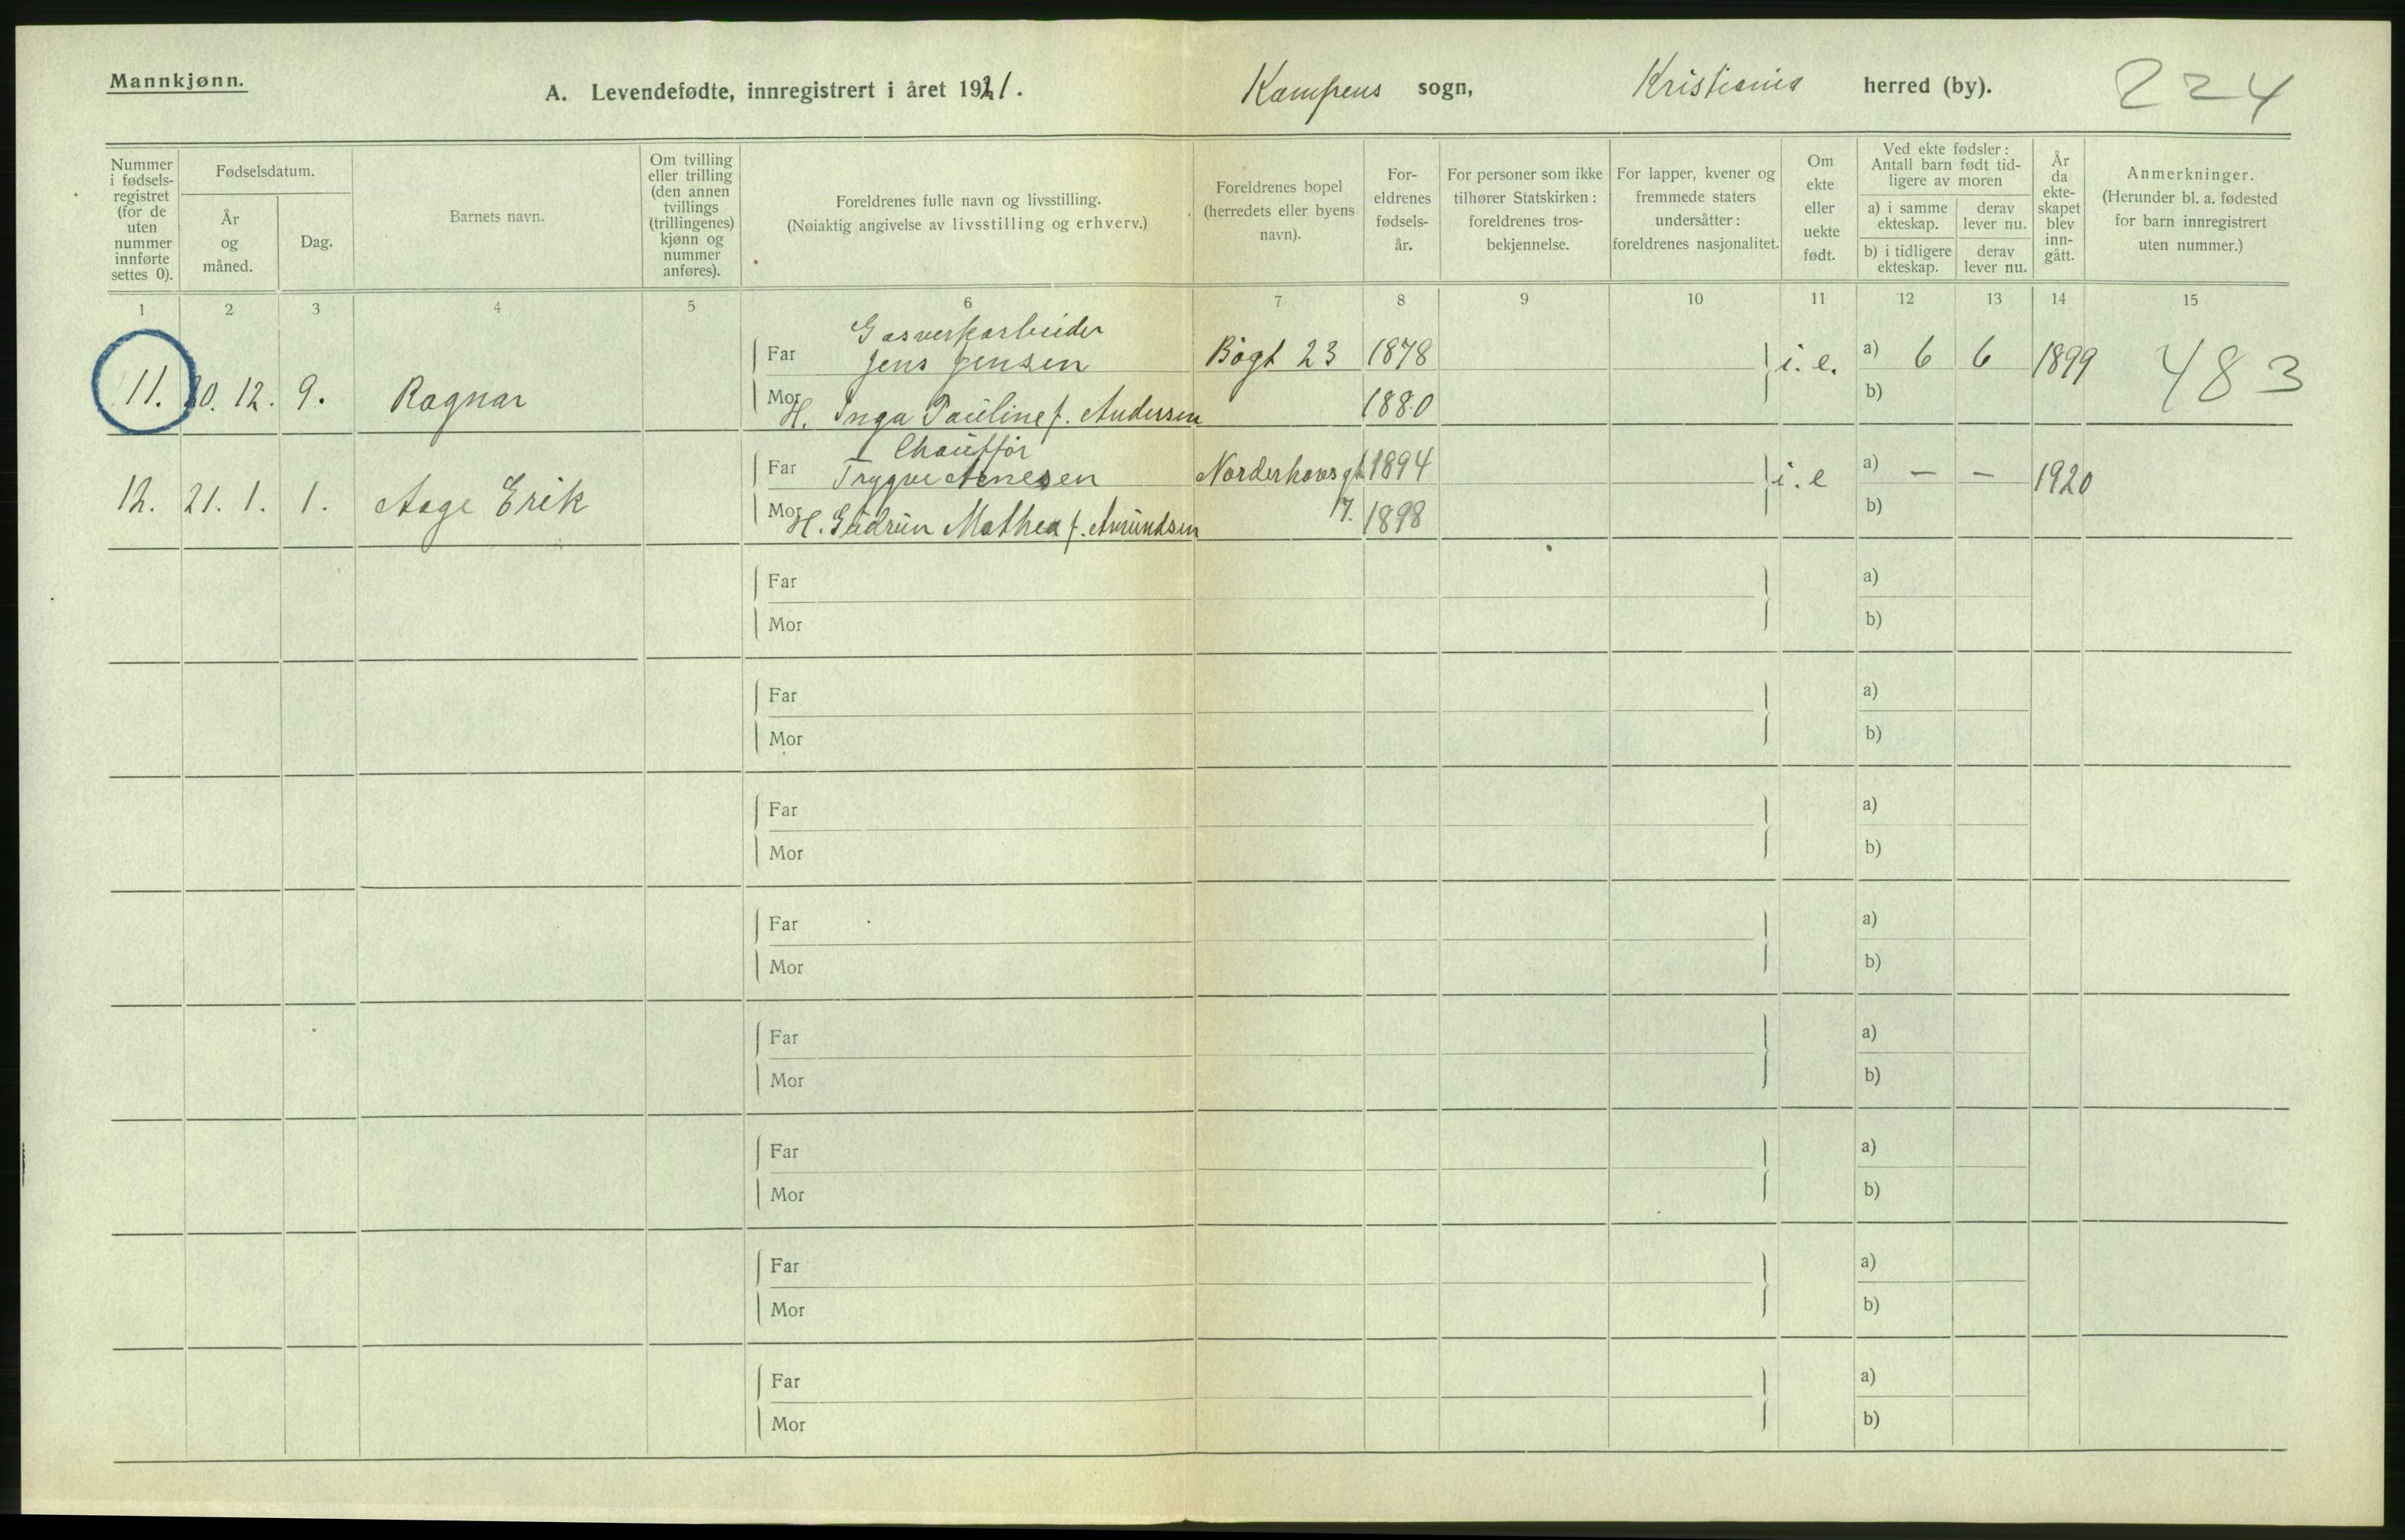 Mannkjønn.
A. Levendefødte, innregistrert i året 1921. Kampens sogn, Kristiania herred (by). 224
Nummer i fødsels-registret (for de uten nummer innførte settes 0).
Fødselsdatum.
År og måned.
Dag.
Barnets navn.
Om tvilling eller trilling (den annen tvillings (trillingenes) kjønn og nummer anføres).
Foreldrenes fulle navn og livsstilling.
(Nøiaktig angivelse av livsstilling og erhverv.)
Foreldrenes bopel (herredets eller byens navn).
For-eldrenes fødsels-år.
For personer som ikke tilhører Statskirken: foreldrenes tros-bekjennelse.
For lapper, kvener og fremmede staters undersåtter: foreldrenes nasjonalitet.
Om ekte eller uekte født.
Ved ekte fødsler: Antall barn født tid-ligere av moren
a) i samme ekteskap.
derav lever nu.
b) i tidligere ekteskap.
derav lever nu.
År da ekte-skapet blev inn-gått.
Anmerkninger.
(Herunder bl. a. fødested for barn innregistrert uten nummer.)
1 2 3 4 5 6 7 8 9 10 11 12 13 14 15
Gasverksarbeider
Far Jens Jensen Bøgt 23 1878 i. e. a) 6 6 1899 483
11. 20. 12. 9. Ragnar
Mor H. Inga Pauline f. Andersen 1880 b)
Chauffør
Far Trygve Arnesen Norderhovsgt 1894 i. e a) – – 1920
12. 21. 1. 1. Aage Erik
Mor H. Gudrun Mathea f. Amundsen 17. 1898 b)
Far a)
Mor b)
Far a)
Mor b)
Far a)
Mor b)
Far a)
Mor b)
Far a)
Mor b)
Far a)
Mor b)
Far a)
Mor b)
Far a)
Mor b)